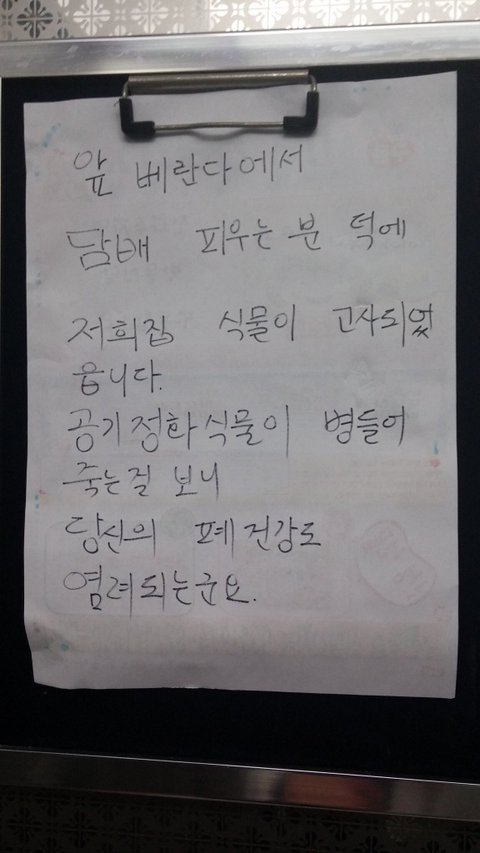 앞 베란다에서
담배 피우는 분 덕에
저희집 식물이 고사되었
읍니다.
공기정화식물이 병들어
죽는걸 보니
당신의 폐건강도
염려되는군요.